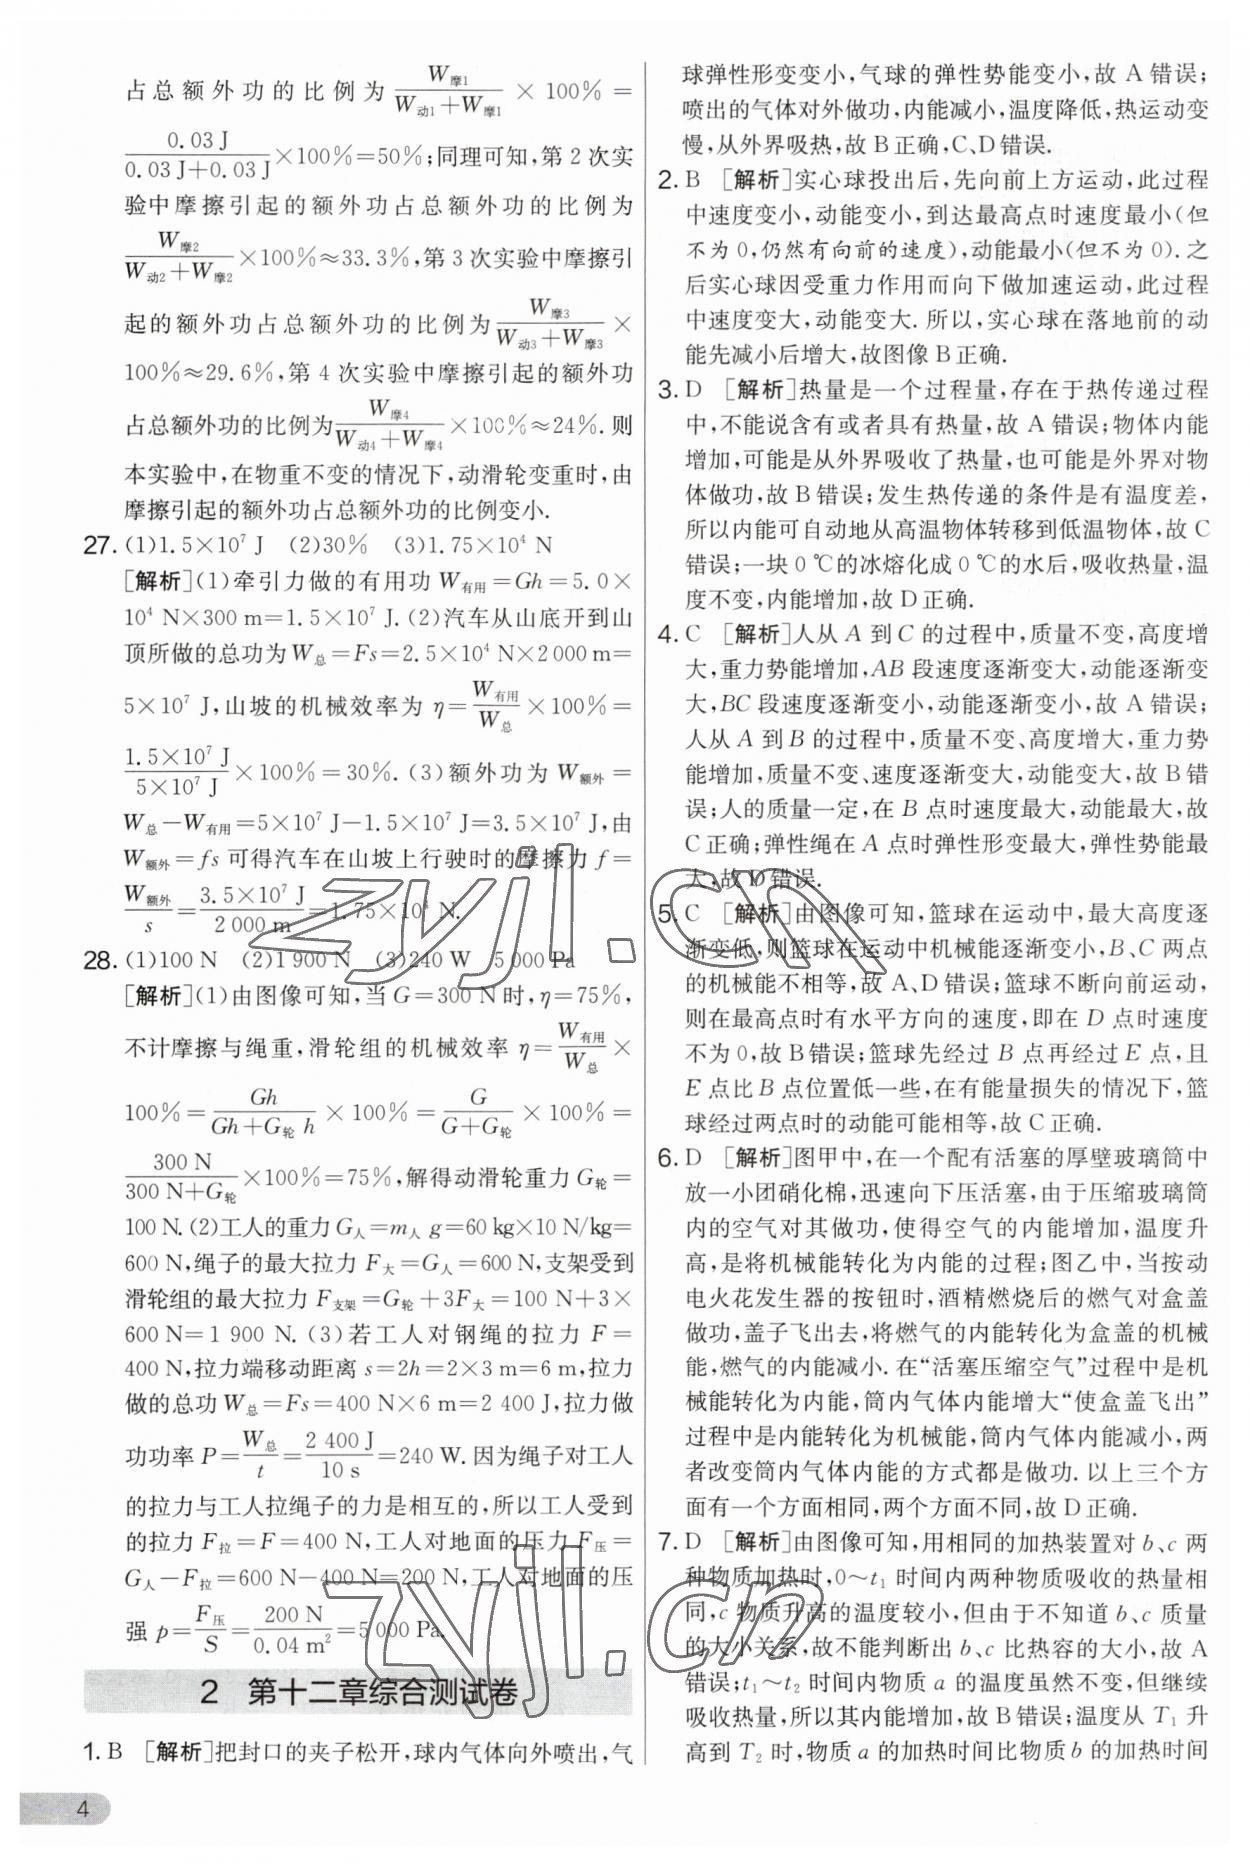 占总额外功的比例为 W摩1/(W动1+W摩1) × 100%=
0.03 J/(0.03 J+0.03 J)×100%=50%;同理可知,第2次实
验中摩擦引起的额外功占总额外功的比例为
W摩2/(W动2+W摩2)×100%≈33.3%,第3次实验中摩擦引
起的额外功占总额外功的比例为 W摩3/(W动3+W摩3) ×
100%≈29.6%,第4次实验中摩擦引起的额外功
占总额外功的比例为 W摩4/(W动4+W摩4)×100%≈24%.则
本实验中,在物重不变的情况下,动滑轮变重时,由
摩擦引起的额外功占总额外功的比例变小.
27. (1)1.5×10⁷ J (2)30% (3)1.75×10⁴ N
[解析](1)牵引力做的有用功W有用=Gh=5.0×
10⁴ N×300 m=1.5×10⁷ J.(2)汽车从山底开到山
顶所做的总功为W总=Fs=2.5×10⁴ N×2 000 m=
5×10⁷ J,山坡的机械效率为 η=W有用/W总×100%=
1.5×10⁷ J/5×10⁷ J×100%=30%.(3)额外功为W额外=
W总-W有用=5×10⁷ J-1.5×10⁷ J=3.5×10⁷ J,由
W额外=fs可得汽车在山坡上行驶时的摩擦力 f=
W额外/s=3.5×10⁷ J/2 000 m=1.75×10⁴ N.
28. (1)100 N (2)1 900 N (3)240 W 5 000 Pa
[解析](1)由图像可知,当G=300 N时,η=75%,
不计摩擦与绳重,滑轮组的机械效率 η=W有用/W总×
100%=Gh/(Gh+G轮 h)×100%=G/(G+G轮)×100%=
300 N/(300 N+G轮)×100%=75%,解得动滑轮重力G轮=
100 N.(2)工人的重力G人=m人 g=60 kg×10 N/kg=
600 N,绳子的最大拉力F大=G人=600 N,支架受到
滑轮组的最大拉力F支架=G轮+3F大=100 N+3×
600 N=1 900 N.(3)若工人对钢绳的拉力F=
400 N,拉力端移动距离s=2h=2×3 m=6 m,拉力
做的总功W总=Fs=400 N×6 m=2 400 J,拉力做
功功率P=W总/t=2 400 J/10 s=240 W.因为绳子对工人
的拉力与工人拉绳子的力是相互的,所以工人受到
的拉力F拉=F=400 N,工人对地面的压力F压=
G人-F拉=600 N-400 N=200 N,工人对地面的压
强p=F压/S=200 N/0.04 m²=5 000 Pa.
2 第十二章综合测试卷
1. B [解析]把封口的夹子松开,球内气体向外喷出,气
球弹性形变变小,气球的弹性势能变小,故A错误;
喷出的气体对外做功,内能减小,温度降低,热运动变
慢,从外界吸热,故B正确,C、D错误.
2. B [解析]实心球投出后,先向前上方运动,此过程
中速度变小,动能变小,到达最高点时速度最小(但
不为0,仍然有向前的速度),动能最小(但不为0).之
后实心球因受重力作用而向下做加速运动,此过程
中速度变大,动能变大.所以,实心球在落地前的动
能先减小后增大,故图像B正确.
3. D [解析]热量是一个过程量,存在于热传递过程
中,不能说含有或者具有热量,故A错误;物体内能
增加,可能是从外界吸收了热量,也可能是外界对物
体做功,故B错误;发生热传递的条件是有温度差,
所以内能可自动地从高温物体转移到低温物体,故C
错误;一块0 ℃的冰熔化成0 ℃的水后,吸收热量,温
度不变,内能增加,故D正确.
4. C [解析]人从A到C的过程中,质量不变,高度增
大,重力势能增加,AB段速度逐渐变大,动能逐渐变
大,BC段速度逐渐变小,动能逐渐变小,故A错误;
人从A到B的过程中,质量不变、高度增大,重力势
能增加,质量不变、速度逐渐变大,动能变大,故B错
误;人的质量一定,在B点时速度最大,动能最大,故
C正确;弹性绳在A点时弹性形变最大,弹性势能最
大,故D错误.
5. C [解析]由图像可知,篮球在运动中,最大高度逐
渐变低,则篮球在运动中机械能逐渐变小,B、C两点
的机械能不相等,故A、D错误;篮球不断向前运动,
则在最高点时有水平方向的速度,即在D点时速度
不为0,故B错误;篮球先经过B点再经过E点,且
E点比B点位置低一些,在有能量损失的情况下,篮
球经过两点时的动能可能相等,故C正确.
6. D [解析]图甲中,在一个配有活塞的厚壁玻璃筒中
放一小团硝化棉,迅速向下压活塞,由于压缩玻璃筒
内的空气对其做功,使得空气的内能增加,温度升
高,是将机械能转化为内能的过程;图乙中,当按动
电火花发生器的按钮时,酒精燃烧后的燃气对盒盖
做功,盖子飞出去,将燃气的内能转化为盒盖的机械
能,燃气的内能减小.在“活塞压缩空气”过程中是机
械能转化为内能,筒内气体内能增大“使盒盖飞出”
过程中是内能转化为机械能,筒内气体内能减小,两
者改变筒内气体内能的方式都是做功.以上三个方
面有一个方面相同,两个方面不同,故D正确.
7. D [解析]由图像可知,用相同的加热装置对b、c两
种物质加热时,0~t₁时间内两种物质吸收的热量相
同,c物质升高的温度较小,但由于不知道b、c质量
的大小关系,故不能判断出b、c比热容的大小,故A
错误;t₁~t₂时间内物质a的温度虽然不变,但继续
吸收热量,所以其内能增加,故B错误;温度从T₁升
高到T₂时,物质a的加热时间比物质b的加热时间
4
zyjl.cn
zyjl.cn